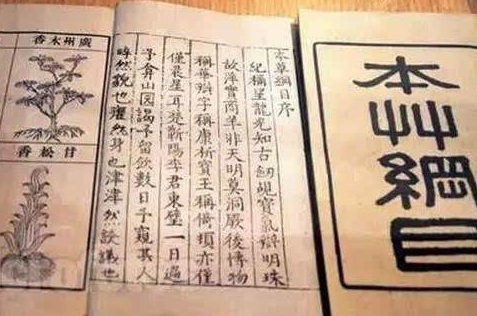 本艸綱目
本草綱目序
紀稱望龍光知古劍覘寶氣辯明珠
故萍實商羊非天明莫洞厥後博物
稱華辯字稱康析寶玉稱倚頓亦僅
僅晨星耳楚蘄陽李君東璧一日過
予弇山園謁予留飲數日予窺其人
睟然貌也癯然身也津津然譚議也
廣州木香
甘松香